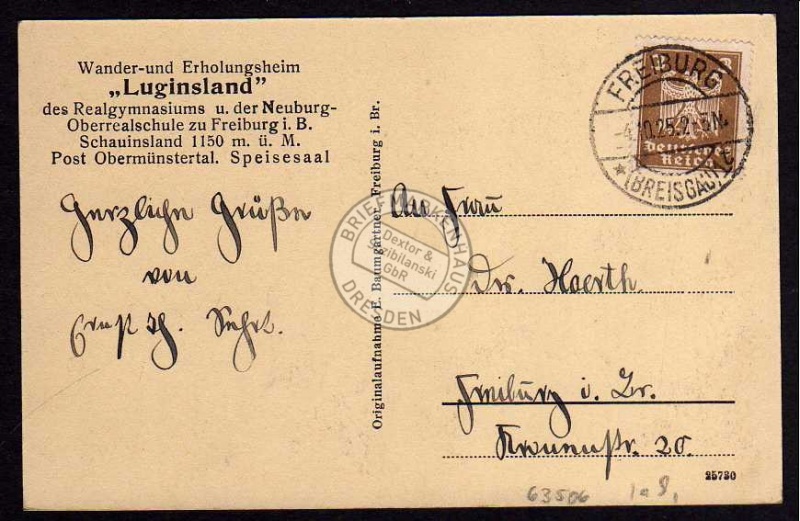 Wander-und Erholungsheim
„Luginsland"
des Realgymnasiums u. der Neuburg-
Oberrealschule zu Freiburg i. B.
Schauinsland 1150 m. ü. M.
Post Obermünstertal. Speisesaal
Herzliche Grüße
von
Ernst
Originalaufnahme E. Baumgartner, Freiburg i. Br.
BRIEFMARKENHAUS
Dextor &
GbR
DRESDEN
FREIBURG
10.25.2
(BREISGAU)
Deutsches
Reich
An Frau
Dr. Haerth.
Freiburg i. Br.
Kronenstr. 20.
25730
63506